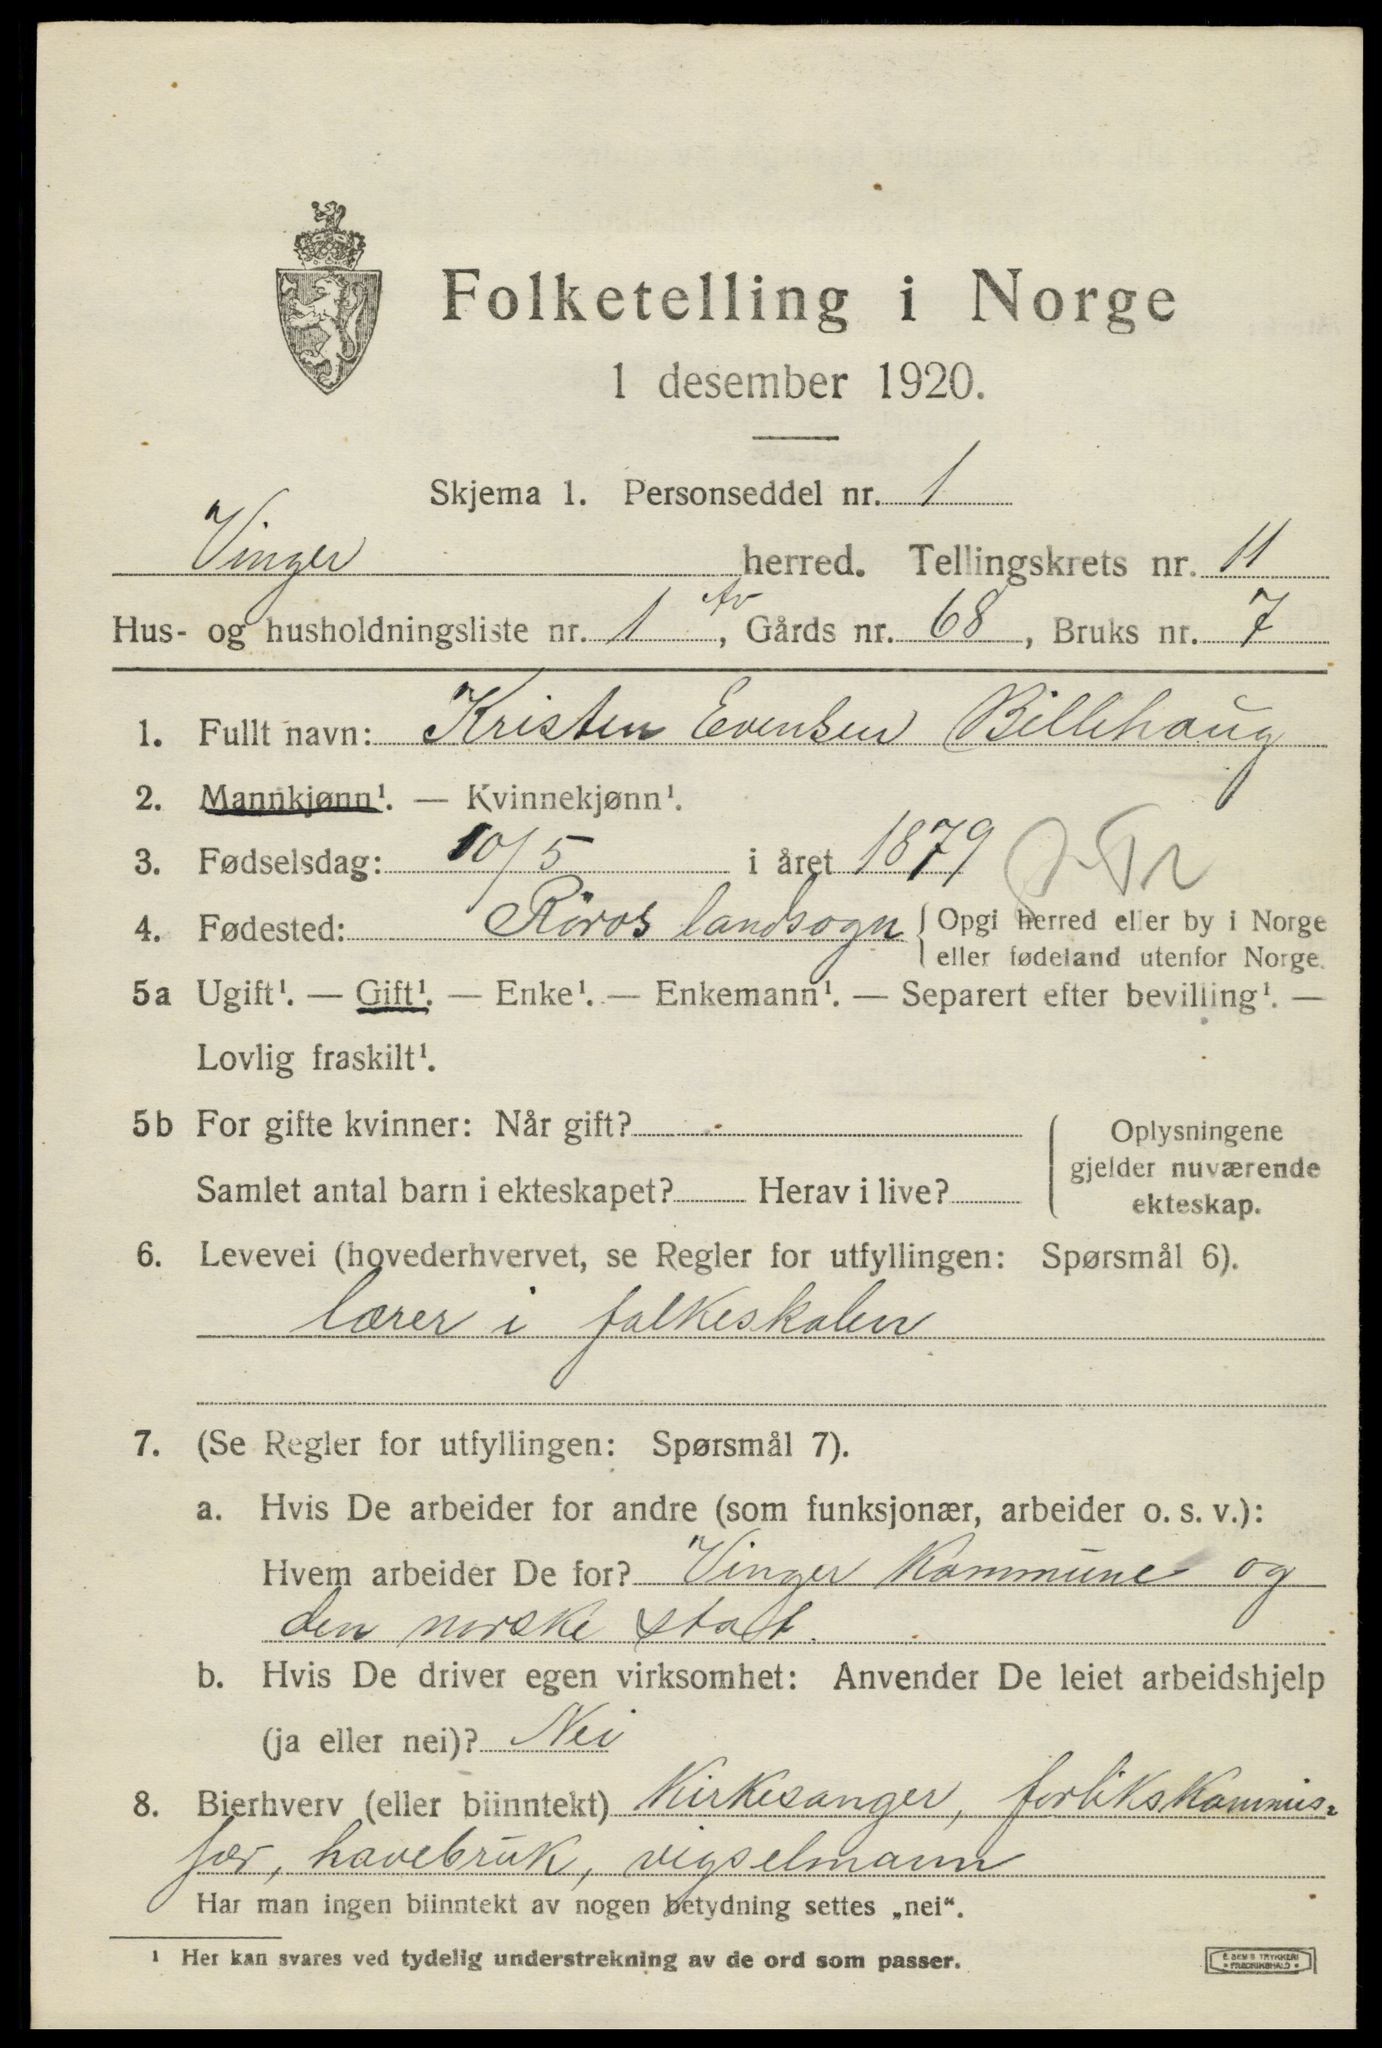 Folketelling i Norge
1 desember 1920.
Skjema 1. Personseddel nr. 1
Vinger herred. Tellingskrets nr. 11
Hus- og husholdningsliste nr. 1, Gårds nr. 68, Bruks nr. 7
1. Fullt navn: Kristen Evensen Billehaug
2. Mannkjønn¹. — Kvinnekjønn¹.
3. Fødselsdag: 10/5 i året 1879
4. Fødested: Röros landsogn { Opgi herred eller by i Norge
eller fødeland utenfor Norge.
5a Ugift¹. — Gift¹. — Enke¹. — Enkemann¹. — Separert efter bevilling¹. —
Lovlig fraskilt¹.
5b For gifte kvinner: Når gift?
Samlet antal barn i ekteskapet? Herav i live?
Oplysningene
gjelder nuværende
ekteskap.
6. Levevei (hovederhvervet, se Regler for utfyllingen: Spørsmål 6).
lærer i folkeskolen
7. (Se Regler for utfyllingen: Spørsmål 7).
a. Hvis De arbeider for andre (som funksjonær, arbeider o. s. v.):
Hvem arbeider De for? Vinger kommune og
den norske stat.
b. Hvis De driver egen virksomhet: Anvender De leiet arbeidshjelp
(ja eller nei)? Nei
8. Bierhverv (eller biinntekt) Kirkesanger, forlikskommis=
sær, havebruk, vigselmann
Har man ingen biinntekt av nogen betydning settes „nei“.
¹ Her kan svares ved tydelig understrekning av de ord som passer.
E. SEM'S TRYKKERI
• FREDRIKSHALD •